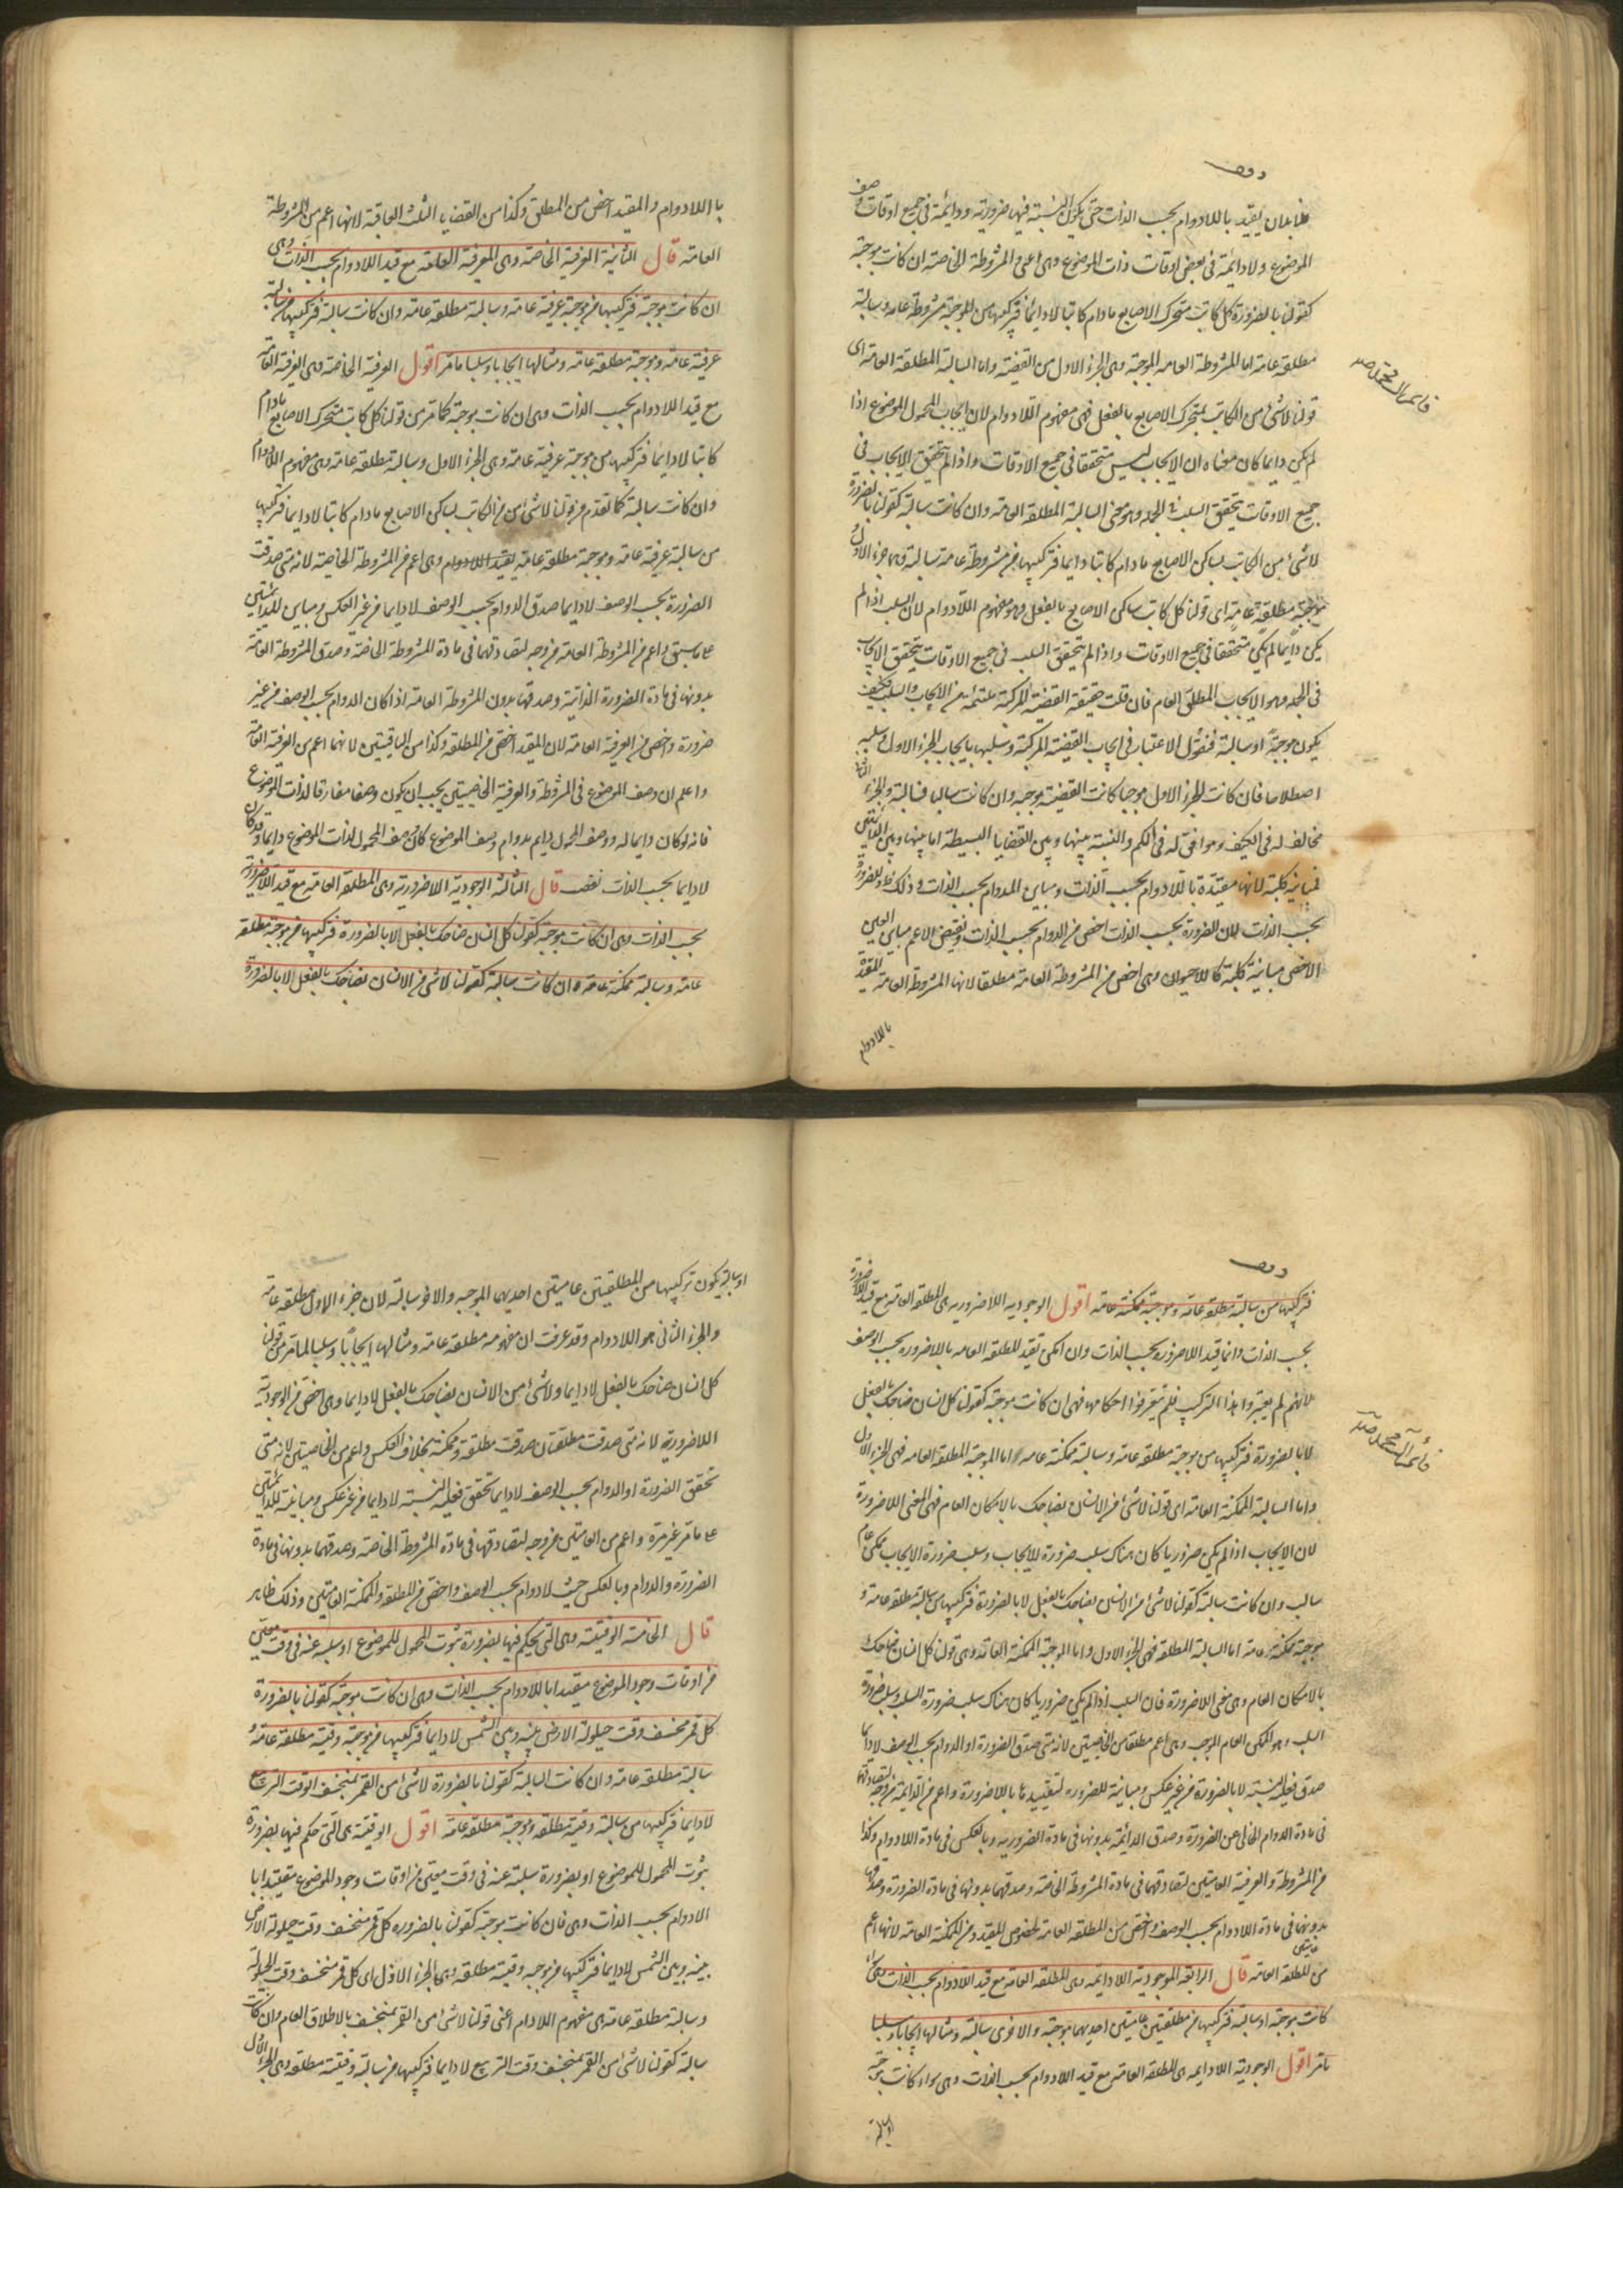 هنا بان يقيد باللادوام بحسب الذات حتى يكون النسبة فيها ضرورية ودائمة في جميع اوقات وصف
الموضوع ولادائمة في بعض اوقات ذات الموضوع وهى اعنى المشروطة الخاصة ان كانت موجبة
كقولنا بالضرورة كل كاتب متحرك الاصابع مادام كاتبا لادايما فتركيبها من الموجبة مشروطة عامة وسالبة
مطلقة عامة اما المشروطة العامة الموجبة وهى الجزء الاول من القضية واما السالبة المطلقة العامة اى
قولنا لا شئ من الكاتب بمتحرك الاصابع بالفعل فهى مفهوم اللادوام لان ايجاب المحمول للموضوع اذا
لم يكن دايما كان معناه ان الايجاب ليس متحققا في جميع الاوقات واذا لم يتحقق الايجاب في
جميع الاوقات يتحقق السلب في الجملة وهو معنى السالبة المطلقة العامة وان كانت سالبة كقولنا بالضرورة
لاشئ من الكاتب بساكن الاصابع مادام كاتبا دايما فتركيبها من مشروطة عامة سالبة وهى جزء الاول
موجبة مطلقة عامة اى قولنا كل كاتب ساكن الاصابع بالفعل وهو مفهوم اللادوام لان السلب اذا لم
يكن دايما لم يكن متحققا في جميع الاوقات واذا لم يتحقق السلب في جميع الاوقات يتحقق الايجاب
في الجملة وهو الايجاب المطلق العام فان قلت حقيقة القضية المركبة ملتئمة من الايجاب والسلب فكيف
يكون موجبة او سالبة فنقول الاعتبار في ايجاب القضية المركبة وسلبها بايجاب الجزء الاول وسلبه
اصطلاحا فان كانت الجزء الاول موجبا كانت القضية موجبة وان كانت سالبا فسالبة والجزء الثانى
مخالف له في الكيف وموافق له في الكم والنسبة بينها وبين القضايا البسيطة اما بينها وبين الدائمتين
فمباينة كلية لانها مقيدة باللادوام بحسب الذات ومباين للدوام بحسب الذات وذلك ظ وللضرورة
بحسب الذات لان الضرورة بحسب الذات اخص من الدوام بحسب الذات ونقيض الاعم مباين لعين
الاخص مباينة كلية كاللاحيوان وهى اخص من المشروطة العامة مطلقا لانها المشروطة العامة المقيدة
باللادوام
باللادوام والمقيد اخص من المطلق وكذا من القضايا الثلث الباقية لانها اعم من المشروطة
العامة قال الثانية العرفية الخاصة وهى العرفية العامة مع قيد اللادوام بحسب الذات وهى
ان كانت موجبة فتركيبها من موجبة عرفية عامة وسالبة مطلقة عامة وان كانت سالبة فتركيبها من سالبة
عرفية عامة وموجبة مطلقة عامة ومثالها ايجابا وسلبا ما مر اقول العرفية الخاصة وهى العرفية العامة
مع قيد اللادوام بحسب الذات وهى ان كانت موجبة كما مر من قولنا كل كاتب متحرك الاصابع مادام
كاتبا لادايما فتركيبها من موجبة عرفية عامة وهى الجزء الاول وسالبة مطلقة عامة وهى مفهوم اللادوام
وان كانت سالبة كما تقدم من قولنا لاشئ من الكاتب بساكن الاصابع مادام كاتبا لادايما فتركيبها
من سالبة عرفية عامة وموجبة مطلقة عامة بقيد اللادوام وهى اعم من المشروطة الخاصة لانه متى صدقت
الضرورة بحسب الوصف لادايما صدق الدوام بحسب الوصف لادايما من غير العكس ومباين للدائمتين
على ما سبق واعم من المشروطة العامة من وجه لتصادقهما في مادة المشروطة الخاصة وصدق المشروطة العامة
بدونها في مادة الضرورة الذاتية وصدقها بدون المشروطة العامة اذا كان الدوام بحسب الوصف من غير
ضرورة واخص من العرفية العامة لان المقيد اخص من المطلقة وكذا من الباقيتين لانهما اعم من العرفية العامة
واعلم ان وصف الموضوع في المشروطة والعرفية الخاصيتين يجب ان يكون وصفا مفارقا لذات الموضوع
فانه لو كان دايما له ووصف المحمول دايم بدوام وصف الموضوع كان وصف المحمول لذات الموضوع دايما وقد كان
لادايما بحسب الذات نقض قال الثالثة الوجودية اللاضرورية وهى المطلقة العامة مع قيد اللاضرورة
بحسب الذات وهى ان كانت موجبة كقولنا كل انسان ضاحك بالفعل لا بالضرورة فتركيبها من موجبة مطلقة
عامة وسالبة ممكنة عامة وان كانت سالبة كقولنا لاشئ من الانسان بضاحك بالفعل لا بالضرورة
فتركيبها من سالبة مطلقة عامة وموجبة ممكنة عامة اقول الوجودية اللاضرورية هى المطلقة العامة مع قيد اللاضرورة
بحسب الذات وانما قيد اللاضرورة بحسب الذات وان امكن تقيد المطلقة العامة باللاضرورة بحسب الوصف
لانهم لم يعتبروا هذا التركيب فلم يتعرفوا احكامها فهى ان كانت موجبة كقولنا كل انسان ضاحك بالفعل
لا بالضرورة فتركيبها من موجبة مطلقة عامة وسالبة ممكنة عامة اما الموجبة المطلقة العامة فهى الجزء الاول
واما السالبة الممكنة العامة اى قولنا لاشئ من الانسان بضاحك بالامكان العام فهى المعنى اللاضرورة
لان الايجاب اذا لم يكن ضروريا كان هناك سلب ضرورة الايجاب وسلب ضرورة الايجاب ممكن عام
سالب وان كانت سالبة كقولنا لاشئ من الانسان بضاحك بالفعل لا بالضرورة فتركيبها من سالبة مطلقة عامة و
موجبة ممكنة عامة اما السالبة المطلقة فهى الجزء الاول واما الموجبة الممكنة العامة وهى قولنا كل انسان ضاحك
بالامكان العام وهى معنى اللاضرورة فان السلب اذا لم يكن ضروريا كان هناك سلب ضرورة السلب وسلب ضرورة
السلب هو الممكن العام الموجب وهى اعم مطلقا من الخاصيتين لانه متى صدق الضرورة او الدوام بحسب الوصف لادايما
صدق فعلية النسبة لا بالضرورة من غير عكس ومباينة للضرورة لتقييدها باللاضرورة واعم من الدائمة من وجه لتصادقهما
في مادة الدوام الخالى عن الضرورة وصدق الدائمة بدونها في مادة الضرورية وبالعكس في مادة اللادوام وكذا
من المشروطة والعرفية العامتين لتصادقهما في مادة المشروطة الخاصة وصدقهما بدونها في مادة الضرورة وصدقها
بدونهما في مادة اللادوام بحسب الوصف واخص من المطلقة العامة لخصوص المقيد ومن الممكنة العامة لانها اعم
من المطلقة العامة قال الرابعة الوجودية اللادايمة وهى المطلقة العامة مع قيد اللادوام بحسب الذات وهى ان
كانت موجبة او سالبة فتركيبها من مطلقتين عامتين احديهما موجبة والاخرى سالبة ومثالها ايجابا وسلبا
ما مر اقول الوجودية اللادايمة هى المطلقة العامة مع قيد اللادوام بحسب الذات وهى سواء كانت موجبة
او سالبة
او سالبة يكون تركيبها من المطلقيتين عامتين احديهما الموجبة والاخر سالبة لان جزء الاول مطلقة عامة
والجزء الثانى هو اللادوام وقد عرفت ان مفهومه مطلقة عامة ومثالها ايجابا وسلبا لما مر من قولنا
كل انسان ضاحك بالفعل لادايما ولاشئ من الانسان بضاحك بالفعل لادايما وهى اخص من الوجودية
اللاضرورية لانه متى صدقت مطلقتان صدقت مطلقة وممكنة بخلاف العكس واعم من الخاصيتين لانه متى
تحقق الضرورة او الدوام بحسب الوصف لادايما تحقق فعلية النسبة لادايما من غير عكس ومباينة للدائمتين
على ما مر غير مرة واعم من العامتين من وجه لتصادقهما في مادة المشروطة الخاصة وصدقهما بدونها في مادة
الضرورة والدوام وبالعكس حيث لادوام بحسب الوصف واخص من المطلقة والممكنة العامتين وذلك ظاهر
قال الخامسة الوقتية وهى التى يحكم فيها بضرورة ثبوت المحمول للموضوع او سلبه عنه في وقت معين
من اوقات وجود الموضوع مقيدا باللادوام بحسب الذات وهى ان كانت موجبة كقولنا بالضرورة
كل قمر منخسف وقت حيلولة الارض بينه وبين الشمس لادايما فتركيبها من موجبة وقتية مطلقة عامة و
سالبة مطلقة عامة وان كانت السالبة كقولنا بالضرورة لاشئ من القمر بمنخسف الوقت التربيع
لادايما فتركيبها من سالبة وقتية مطلقة وموجبة مطلقة عامة اقول الوقتية هى التى حكم فيها بضرورة
ثبوت المحمول للموضوع او بضرورة سلبه عنه في وقت معين من اوقات وجود الموضوع مقيدا با
لادوام بحسب الذات وهى فان كانت موجبة كقولنا بالضرورة كل قمر منخسف وقت حيلولة الارض
بينه وبين الشمس لادايما فتركيبها من موجبة وقتية مطلقة وهى الجزء الاول اى كل قمر منخسف وقت الحيلولة
وسالبة مطلقة عامة هى مفهوم اللادام اعنى قولنا لاشئ من القمر بمنخسف بالاطلاق العام وان كانت
سالبة كقولنا لاشئ من القمر بمنخسف وقت التربيع لادايما فتركيبها من سالبة وقتية مطلقة وهى الجزء الاول